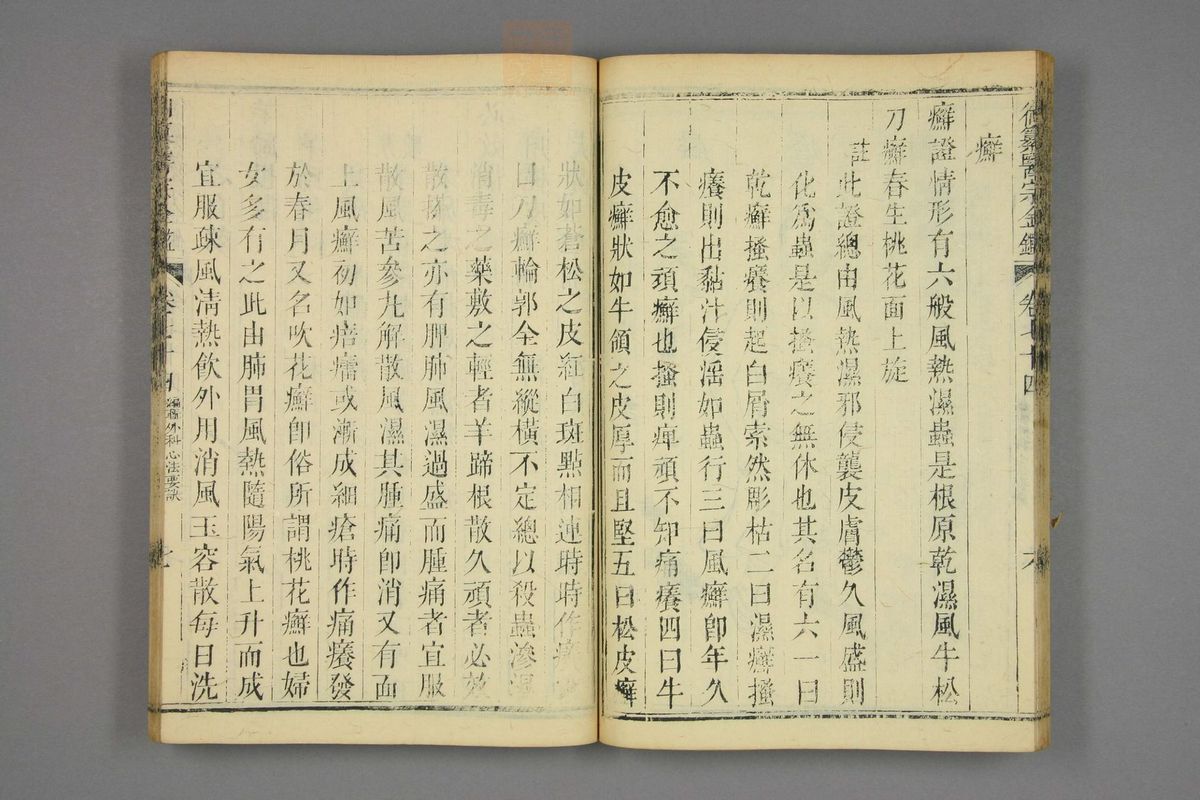 御纂醫宗金鑑 卷七十四 六
癬
癬證情形有六般風熱濕蟲是根原乾濕風牛松
刀癬春生桃花面上旋
註此證總由風熱濕邪侵襲皮膚鬱久風盛則
化為蟲是以搔癢之無休也其名有六一曰
乾癬搔癢則起白屑索然彫枯二曰濕癬搔
癢則出黏汁侵淫如蟲行三曰風癬卽年久
不愈之頑癬也搔則痺頑不知痛癢四曰牛
皮癬狀如牛領之皮厚而且堅五曰松皮癬
狀如蒼松之皮紅白斑點相連時時作癢
曰刀癬輪郭全無縱橫不定總以殺蟲滲濕
消毒之藥敷之輕者羊蹄根散久頑者必效
散搽之亦有脾肺風濕過盛而腫痛者宜服
散風苦參丸解散風濕其腫痛卽消又有面
上風癬初如㾦㿔或漸成細瘡時作痛癢發
於春月又名吹花癬卽俗所謂桃花癬也婦
女多有之此由肺胃風熱隨陽氣上升而成
宜服疎風清熱飲外用消風玉容散每日洗
卷七十四 編輯外科心法要訣 七